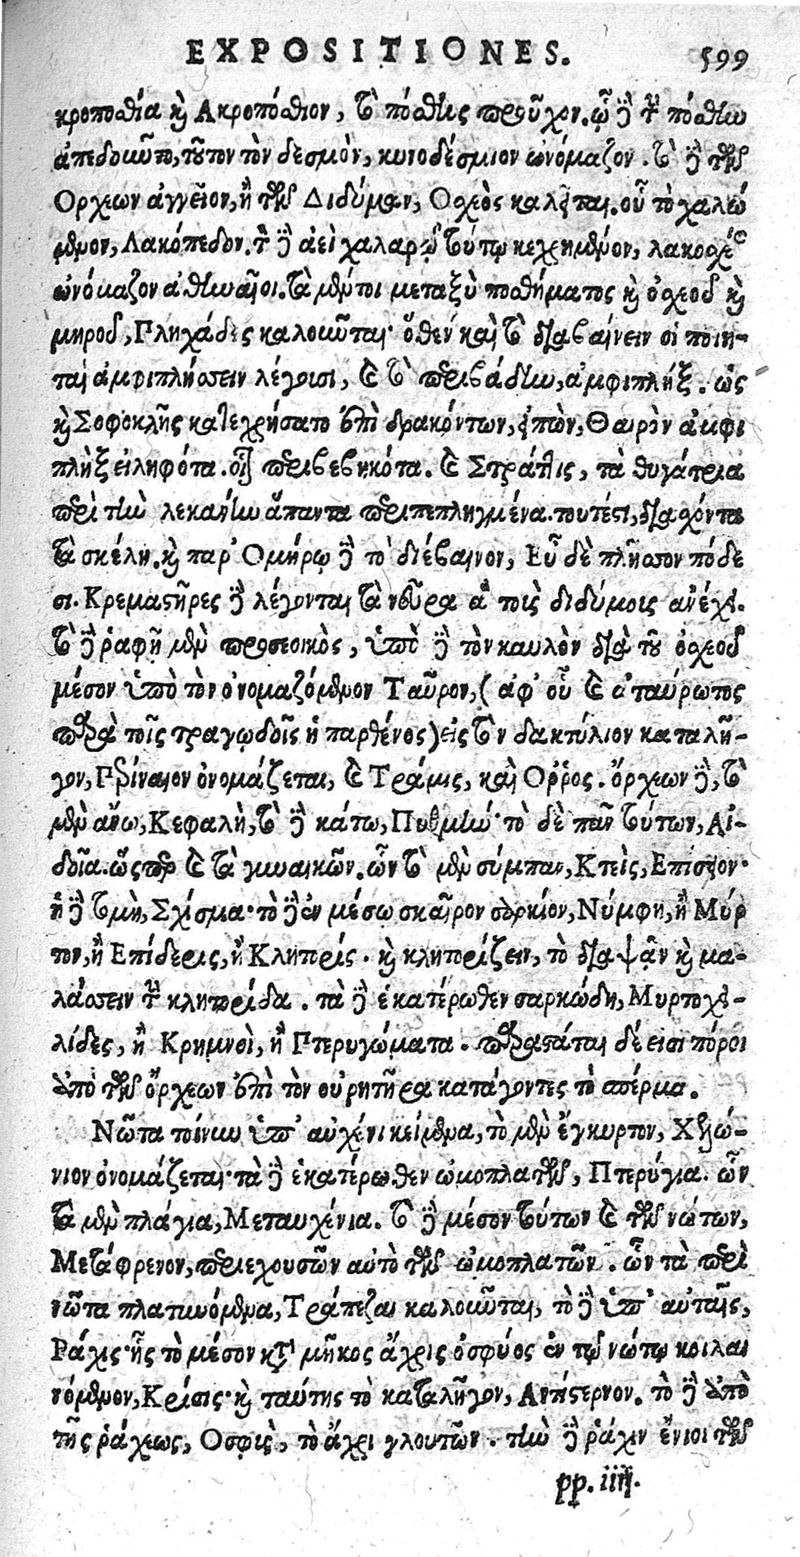 EXPOSITIONES. 599
κροποσθία κὶ Ακροπόσθιον, τὸ πόσθης προὖχον. ᾧ δὲ τὴν πόσθην
ἀπεδοῦντο, τοῦτον τὸν δεσμὸν, κυνοδέσμιον ὠνόμαζον. τὸ δὲ τῶν
Ορχεων ἀγγεῖον, ἢ τῶν Διδύμων, Οσχεὸς καλεῖται. οὗ τὸ χαλώ
μενον, Λακόπεδον. τὸν δὲ ἀεὶ χαλαρῷ τούτῳ κεχρημένον, λακοσχέαν
ὠνόμαζον ἀθηναῖοι. τὰ μέντοι μεταξὺ ποσθήματος κὶ ὀσχεοῦ κὶ
μηροῦ, Πληχάδες καλοῦνται· ὅθεν καὶ τὸ διαβαίνειν οἱ ποιη-
ταὶ ἀμφιπλήσσειν λέγουσι, καὶ τὸ περιβάδην, ἀμφιπλήξ. ὡς
κὶ Σοφοκλῆς κατεχρήσατο ἐπὶ δρακόντων, εἰπὼν, Θαιρὸν ἀμφι
πλὴξ εἰληφότα. οἷον περιβεβηκότα. καὶ Στράτις, τὰ θυγάτρια
περὶ τὴν λεκάνην ἅπαντα περιπεπλιγμένα. τουτέστι, διασχόντα
τὰ σκέλη. κὶ παρ' Ομήρῳ δὲ τὸ διέβαινον, Εὖ δὲ πλήσσον πόδε
σι. Κρεμαστῆρες δὲ λέγονται τὰ νεῦρα ἃ τοὺς διδύμους ἀνέχει.
τὸ δὲ ῥαφῇ μὲν προσεοικὸς, ὑπὸ δὲ τὸν καυλὸν διὰ τοῦ ὀσχεοῦ
μέσου ὑπὸ τὸν ὀνομαζόμενον Ταῦρον, (ἀφ' οὗ καὶ ἀταύρωτος
παρὰ τοῖς τραγῳδοῖς ἡ παρθένος) εἰς τὸν δακτύλιον καταλῆ-
γον, Περίναιον ὀνομάζεται, καὶ Τράμις, καὶ Οῤῥος. ὄρχεων δὲ, τὸ
μὲν ἄνω, Κεφαλὴ, τὸ δὲ κάτω, Πυθμήν· τὸ δὲ πᾶν τούτων, Αἰ-
δοῖα. ὥσπερ καὶ τὰ γυναικῶν. ὧν τὸ μὲν σύμπαν, Κτεὶς, Επίσειον·
ἡ δὲ τομὴ, Σχίσμα· τὸ δὲ ἐν μέσῳ σκαῖρον σαρκίον, Νύμφη, ἢ Μύρ
τον, ἢ Επίδερις, ἢ Κλητορίς. κὶ κλητορίζειν, τὸ διαψᾶν κὶ μα-
λάσσειν τὴν κλητορίδα. τὰ δὲ ἑκατέρωθεν σαρκώδη, Μυρτοχει-
λίδες, ἢ Κρημνοὶ, ἢ Πτερυγώματα. παραστάται δέ εἰσι πόροι
ἀπὸ τῶν ὄρχεων ἐπὶ τὸν οὐρητῆρα κατάγοντες τὸ σπέρμα.
Νῶτα τοίνυν ὑπ' αὐχένι κείμενα, τὸ μὲν ἔγκυρτον, Χελώ-
νιον ὀνομάζεται· τὰ δὲ ἑκατέρωθεν ὠμοπλατῶν, Πτερύγια. ὧν
τὰ μὲν πλάγια, Μεταυχένια. τὸ δὲ μέσον τούτων καὶ τῶν νώτων,
Μετάφρενον, περιεχουσῶν αὐτὸ τῶν ὠμοπλατῶν. ὧν τὰ περὶ
νῶτα πλατυνόμενα, Τράπεζαι καλοῦνται, τὸ δὲ ὑπ' αὐταῖς,
Ράχις· ἧς τὸ μέσον κατὰ μῆκος ἄχρις ὀσφύος ἐν τῷ νώτῳ κοιλαι
νόμενον, Κρίσις· κὶ ταύτης τὸ καταλῆγον, Αντίστερνον. τὸ δὲ ἀπὸ
τῆς ῥάχεως, Οσφὺς, τὸ ἄχρι γλουτῶν. τὴν δὲ ῥάχιν ἔνιοι τῶν
pp. iiij.